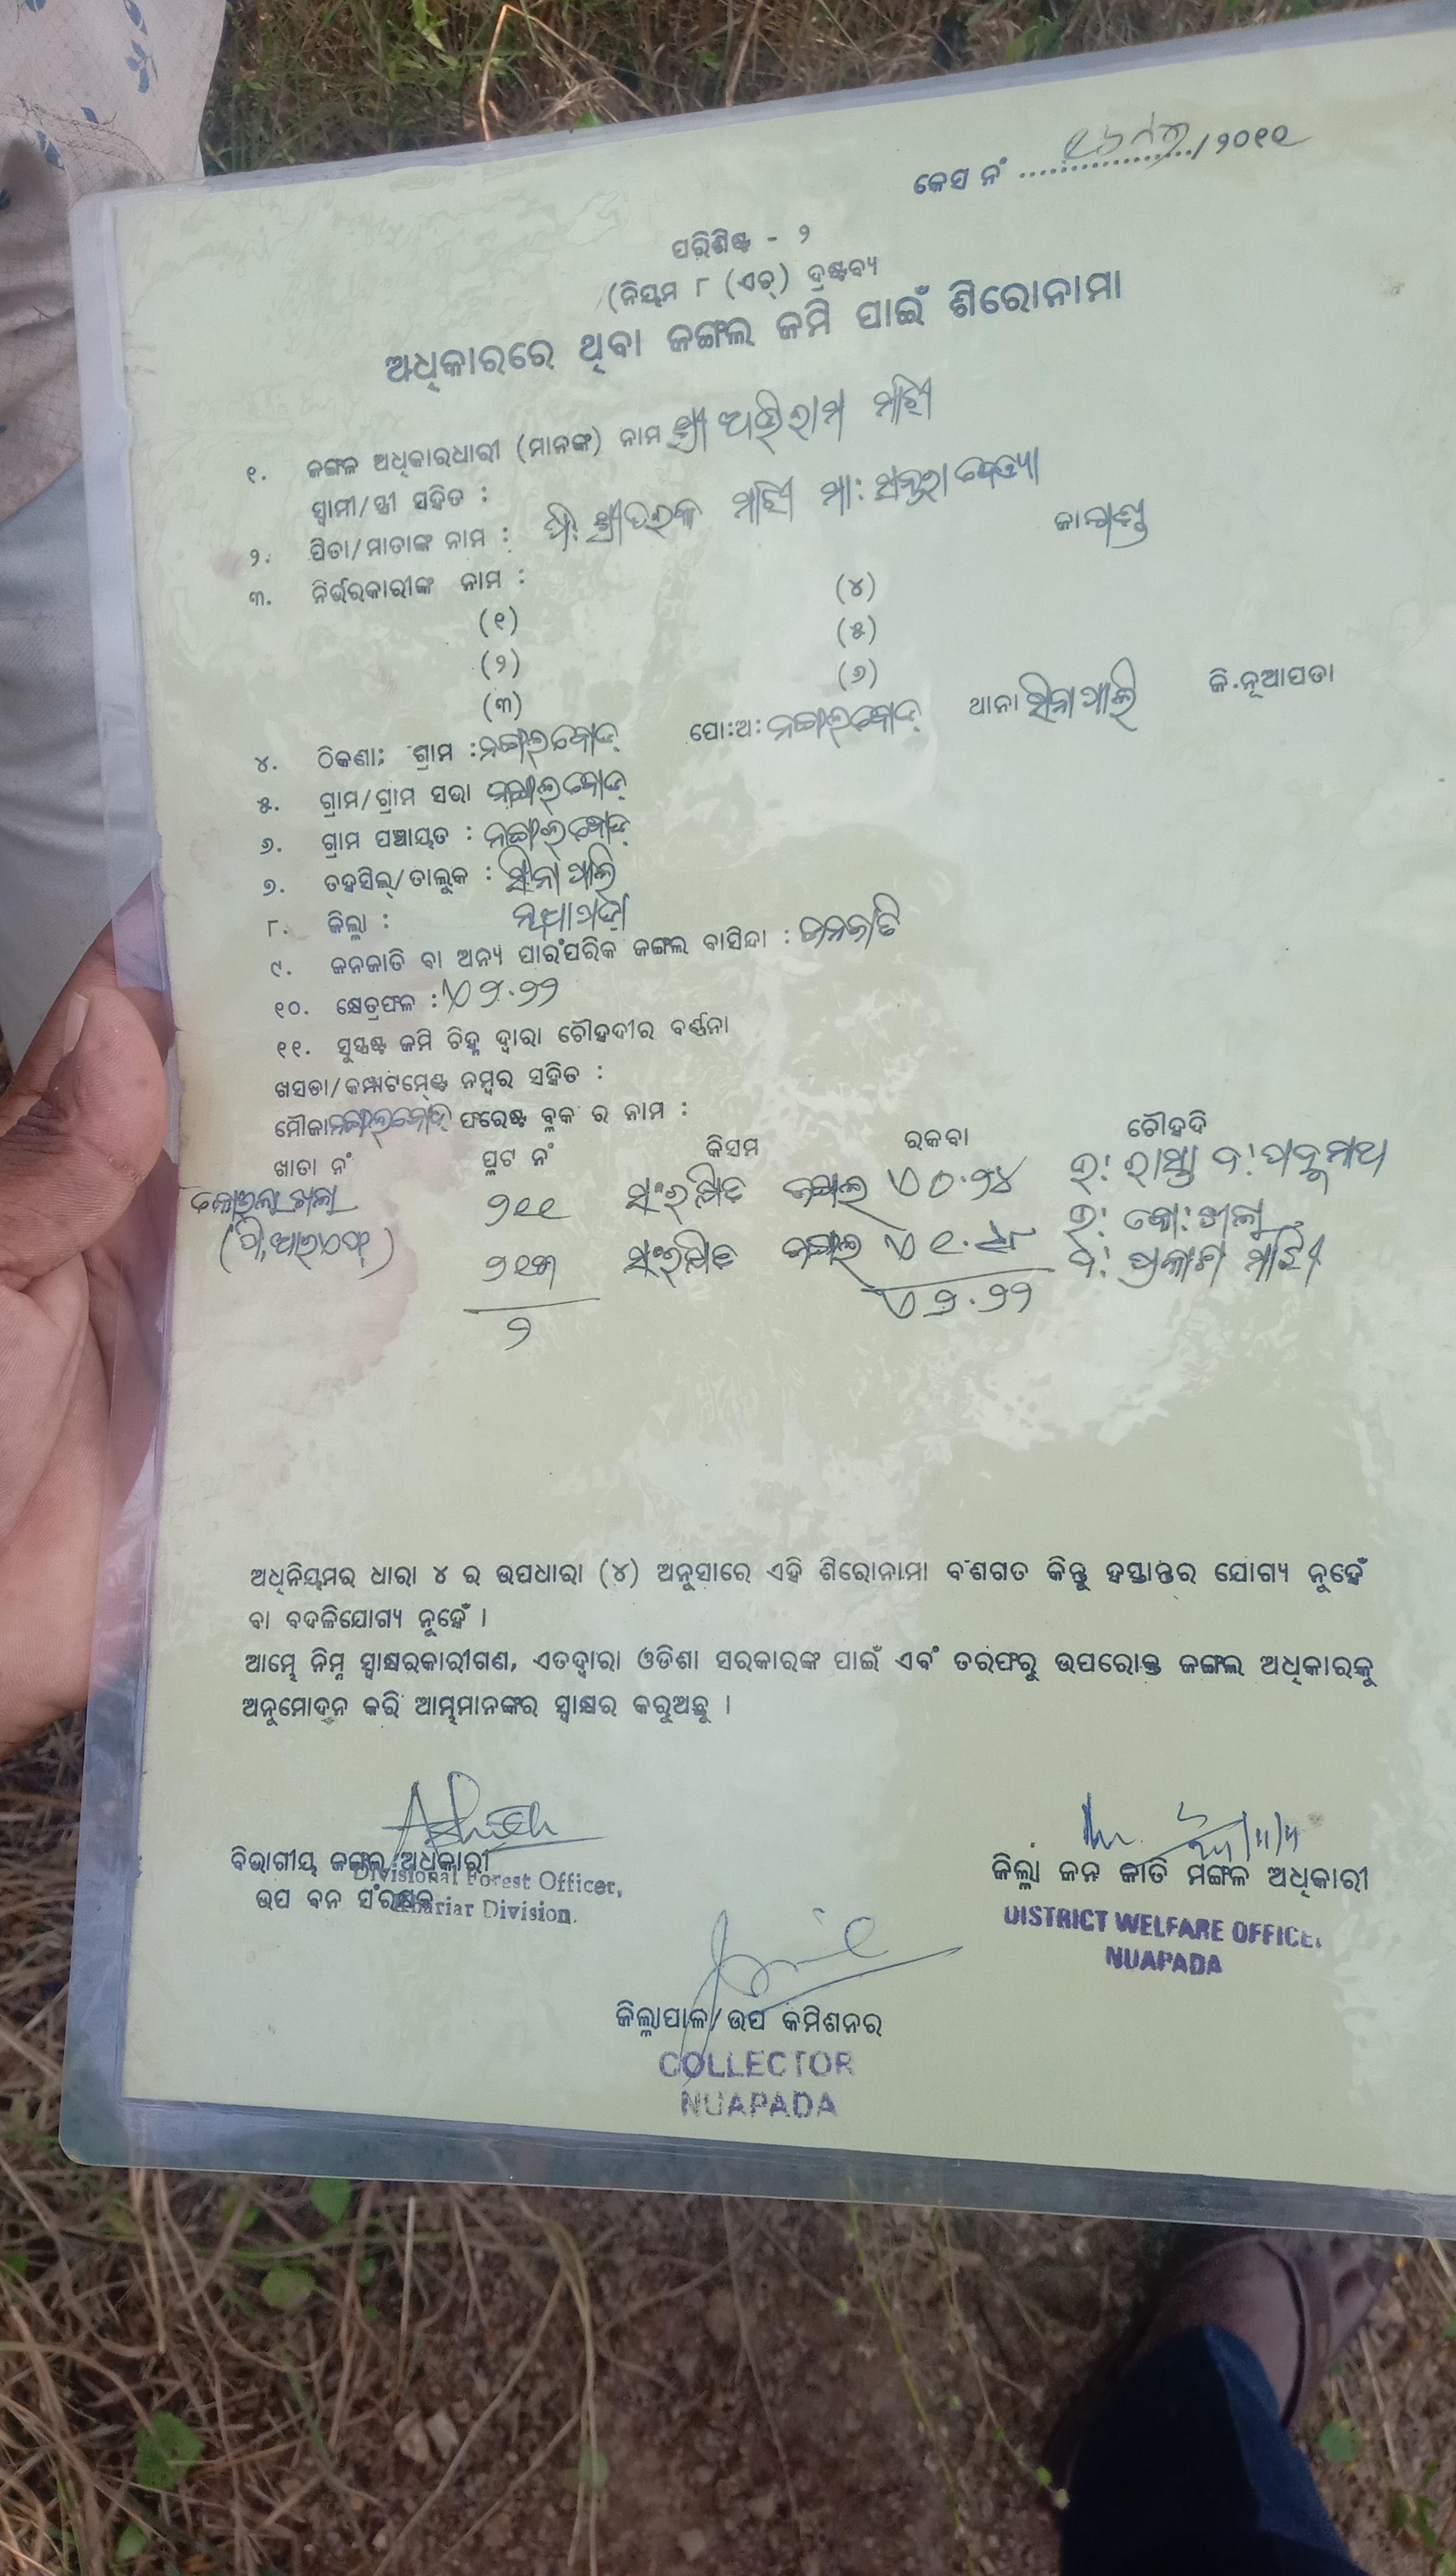 କେସ ନଂ ................/ ୨୦୧୧
ପରିଶିଷ୍ଟ - ୨
(ନିୟମ ୮ (ଏଚ୍) ଦ୍ରଷ୍ଟବ୍ୟ
ଅଧିକାରରେ ଥିବା ଜଙ୍ଗଲ ଜମି ପାଇଁ ଶିରୋନାମା
୧. ଜଙ୍ଗଳ ଅଧିକାରଧାରୀ (ମାନଙ୍କ) ନାମ ଶ୍ରୀ ଅଭିରାମ ମାଝି
ସ୍ୱାମୀ/ସ୍ତ୍ରୀ ସହିତ :
୨. ପିତା/ମାତାଙ୍କ ନାମ : ମାଝି ମା:
୩. ନିର୍ଭରକାରୀଙ୍କ ନାମ :
(୧) (୪)
(୨) (୫)
(୩) (୬)
୪. ଠିକଣା; ଗ୍ରାମ : ନଙ୍ଗଲବୋଡ଼ ପୋ:ଅ: ନଙ୍ଗଲବୋଡ଼ ଥାନା ସିନାପାଲି ଜି.ନୂଆପଡା
୫. ଗ୍ରାମ/ଗ୍ରାମ ସଭା ନଙ୍ଗଲବୋଡ଼
୬. ଗ୍ରାମ ପଞ୍ଚାୟତ : ନଙ୍ଗଲବୋଡ଼
୭. ତହସିଲ୍/ତାଲୁକ : ସିନାପାଲି
୮. ଜିଲ୍ଲା : ନୂଆପଡ଼ା
୯. ଜନଜାତି ବା ଅନ୍ୟ ପାରଂପରିକ ଜଙ୍ଗଲ ବାସିନ୍ଦା : ଜନଜାତି
୧୦. କ୍ଷେତ୍ରଫଳ : ୨.୨୨
୧୧. ସୁସ୍ପଷ୍ଟ ଜମି ଚିହ୍ନ ଦ୍ୱାରା ଚୌହଦୀର ବର୍ଣ୍ଣନା
ଖସଡା/କମ୍ପାଟମେଣ୍ଟ ନମ୍ବର ସହିତ :
ମୌଜା ନଙ୍ଗଲବୋଡ଼ ଫରେଷ୍ଟ ବ୍ଲକ ର ନାମ :
ଖାତା ନଂ ପ୍ଲଟ ନଂ କିସମ ରକବା ଚୌହଦି
୨୧୧ ସଂରକ୍ଷିତ ଜଙ୍ଗଲ ୦.୨୪ ଉ: ରାସ୍ତା
(ପି,ଆର୍‌ଏଫ୍) ୨୧୩ ସଂରକ୍ଷିତ ଜଙ୍ଗଲ ଦ: ପ୍ରକାଶ ମାଝି
୨ ୨.୨୨
ଅଧିନିୟମର ଧାରା ୪ ର ଉପଧାରା (୪) ଅନୁସାରେ ଏହି ଶିରୋନାମା ବଂଶଗତ କିନ୍ତୁ ହସ୍ତାନ୍ତର ଯୋଗ୍ୟ ନୁହେଁ
ବା ବଦଳିଯୋଗ୍ୟ ନୁହେଁ ।
ଆମ୍ଭେ ନିମ୍ନ ସ୍ୱାକ୍ଷରକାରୀଗଣ, ଏତଦ୍ୱାରା ଓଡିଶା ସରକାରଙ୍କ ପାଇଁ ଏବଂ ତରଫରୁ ଉପରୋକ୍ତ ଜଙ୍ଗଲ ଅଧିକାରକୁ
ଅନୁମୋଦନ କରି ଆମ୍ଭମାନଙ୍କର ସ୍ୱାକ୍ଷର କରୁଅଛୁ ।
ବିଭାଗୀୟ ଜଙ୍ଗଲ ଅଧିକାରୀ
Divisional Forest Officer,
ଉପ ବନ ସଂରକ୍ଷକ
Khariar Division.
ଜିଲ୍ଲା ଜନ ଜାତି ମଙ୍ଗଳ ଅଧିକାରୀ
DISTRICT WELFARE OFFICE.
NUAPADA
ଜିଲ୍ଲାପାଳ/ଉପ କମିଶନର
COLLECTOR
NUAPADA